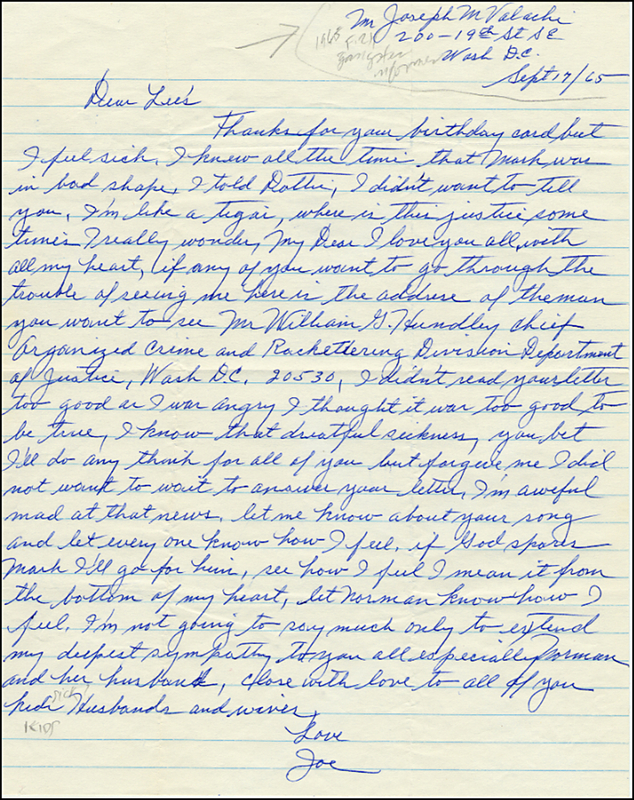 Mr Joseph M Valachi
200-19th St SE
Wash D.C.
Sept 17/65
1965
F.B.I.
gangster
informer
Dear Lee's
Thanks for your birthday card but
I feel sick, I knew all the time that Mark was
in bad shape, I told Dottie, I didn't want to tell
you, I'm like a tigar, where is this justice, some
times I really wonder, My Dear I love you all, with
all my heart, if any of you want to go through the
trouble of seeing me here is the address of the man
you want to see Mr William G. Hundley chief
Organized Crime and Rackettering Division Department
of Justice, Wash D.C. 20530, I didn't read your letter
too good as I was angry I thought it was too good to
be true, I know that dreatful sickness, you bet
I'll do any think for all of you but forgive me I did
not want to wait to answer your letter, I'm aweful
mad at that news, let me know about your song
and let every one know how I feel, if God spares
Mark I'll go for him, see how I feel I mean it from
the bottom of my heart, let Norman know how I
feel. I'm not going to say much only to extend
my deepest sympathy to you all especially Norman
and her husband, close with love to all of you
kids Husbands and wives,
KIDS
Love
Joe